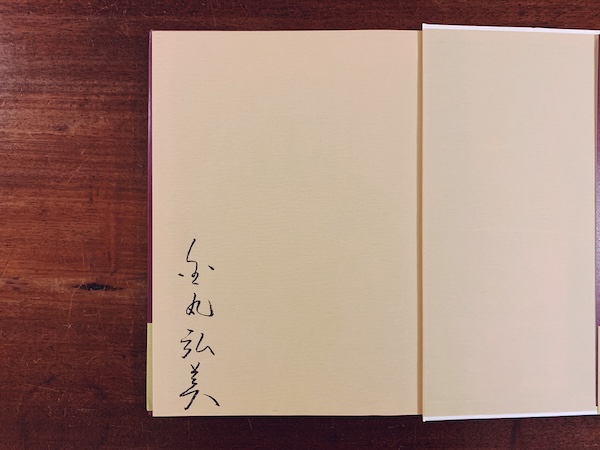 金丸弘美